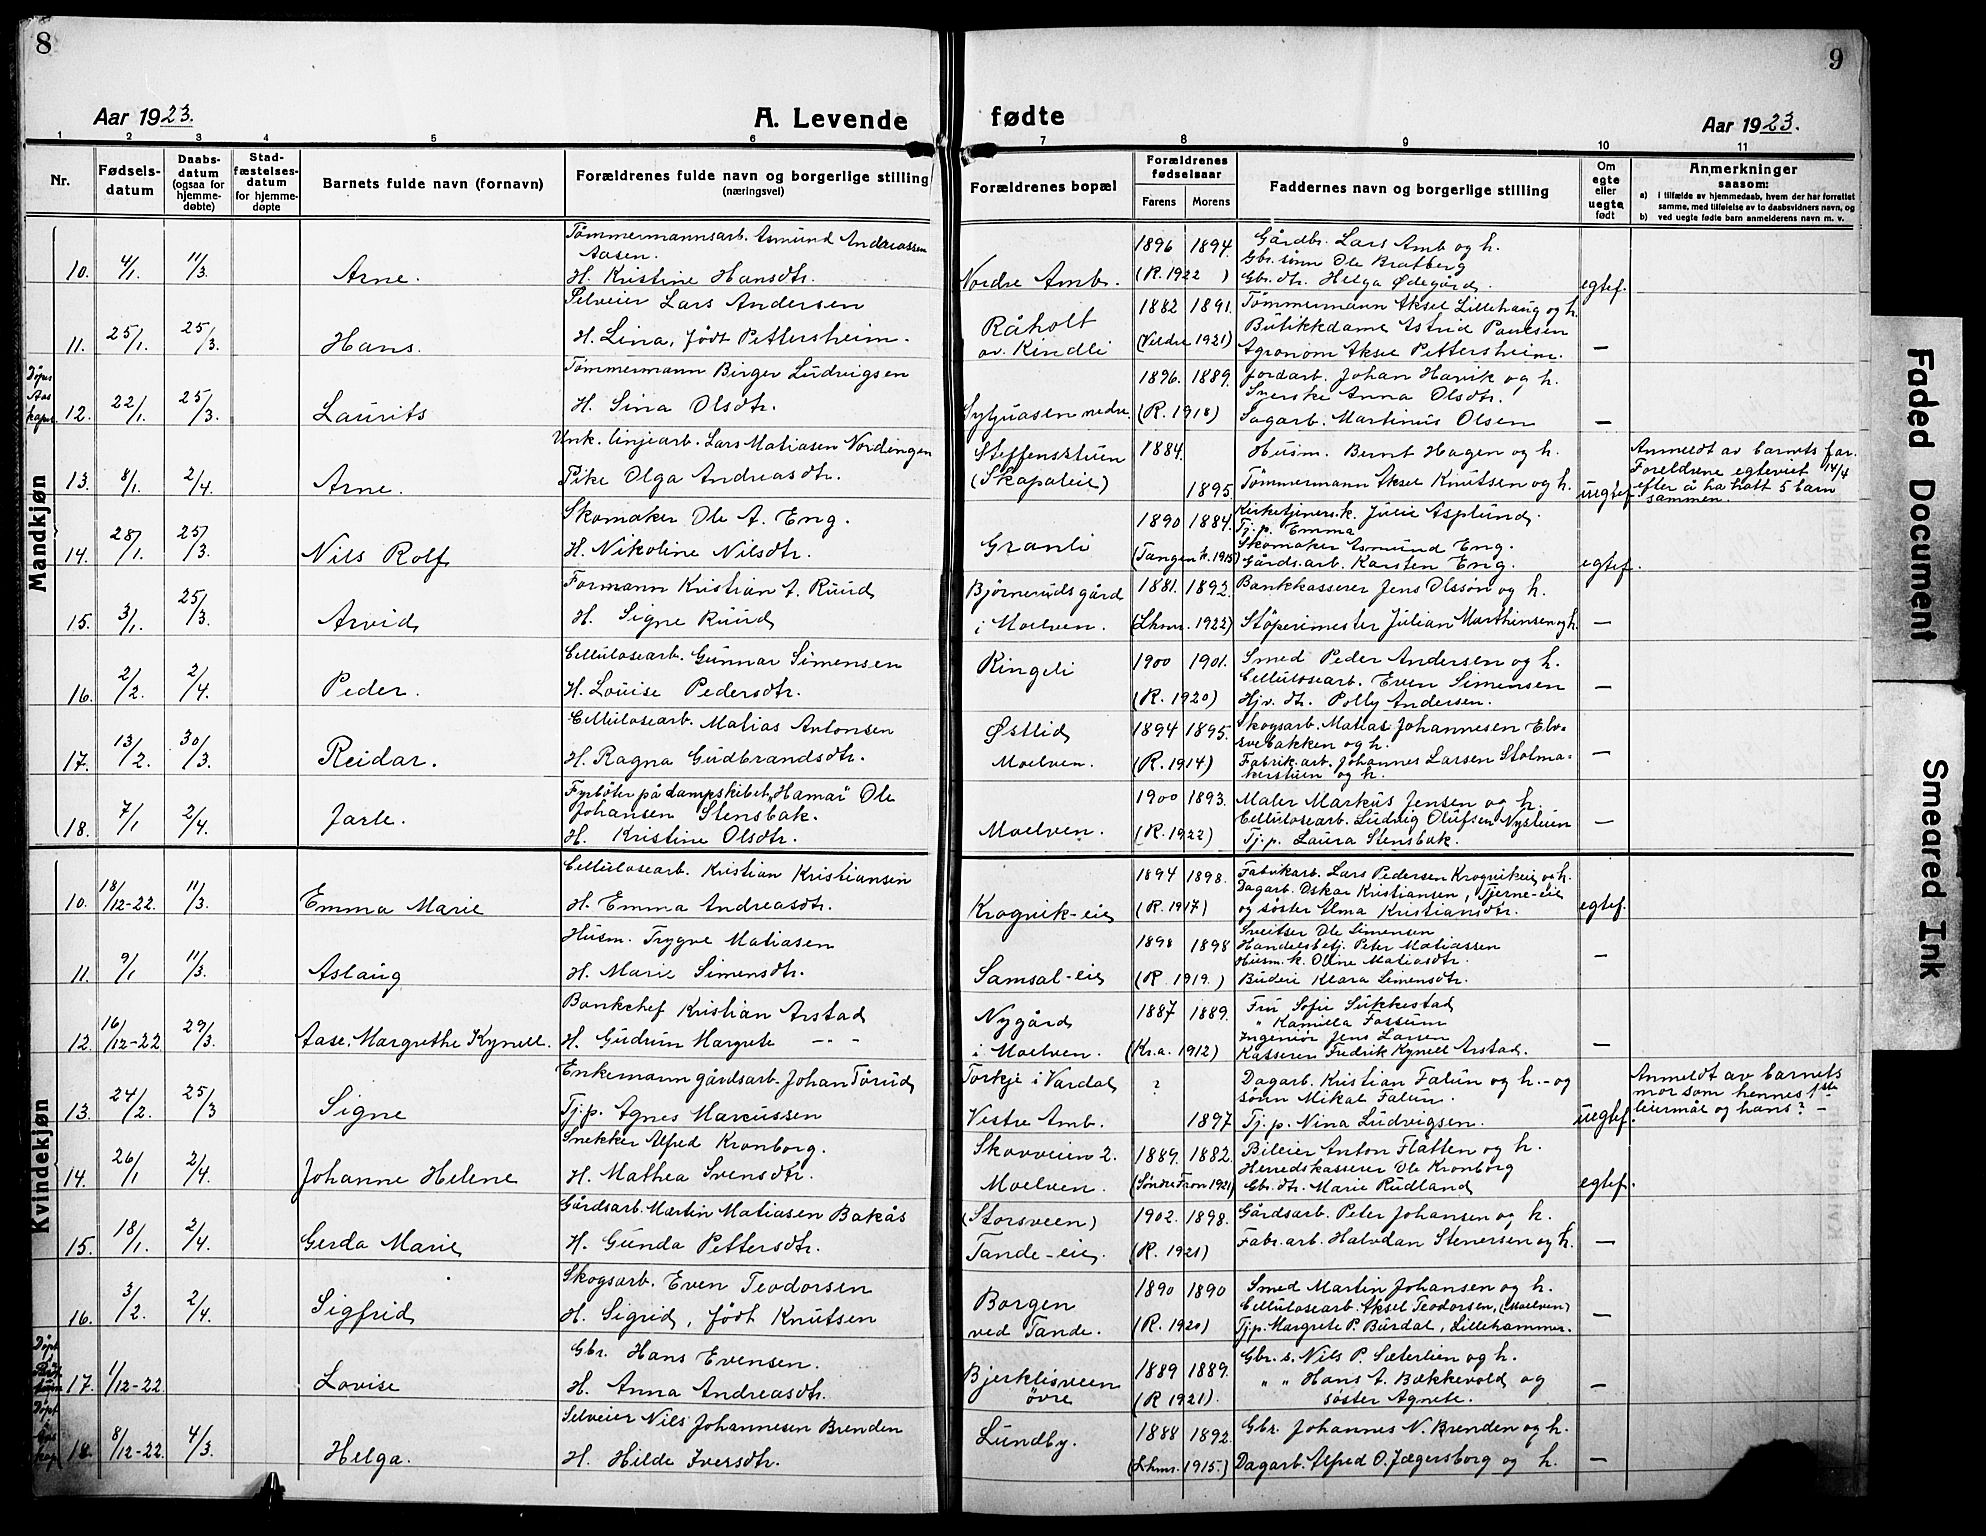 8
Aar 1923.
A. Levende
1 2 3 4 5 6
Nr.
Fødsels-
datum
Daabs-
datum
(ogsaa for
hjemme-
døbte)
Stad-
fæstelses-
datum
for hjemme-
døpte
Barnets fulde navn (fornavn)
Forældrenes fulde navn og borgerlige stilling
(næringsvei)
Mandkjøn
Tømmermannsarb. Asmund Andreassen
Aasen.
10. 4/1. 11/3. Arne. H. Kristine Hansdtr.
Selveier Lars Andersen
11. 25/1. 25/3. Hans. H. Lina, født Pettersheim.
Tømmermann Birger Ludvigsen
Døpt
Aas
kapel.
12. 22/1. 25/3. Laurits H. Sina Olsdtr.
Unk. linjearb. Lars Matiasen Nordingen
13. 8/1. 2/4. Arne. Pike Olga Andreasdtr.
Skomaker Ole A. Eng.
14. 28/1. 25/3. Nils Rolf H. Nikoline Nilsdtr.
Formann Kristian A. Ruud
15. 3/1. 25/3. Arvid H. Signe Ruud
Cellulosearb. Gunnar Simensen
16. 2/2. 2/4. Peder. H. Louise Pedersdtr.
Cellulosearb. Matias Antonsen
17. 13/2. 30/3. Reidar. H. Ragna Gudbrandsdtr.
Fyrbøter på dampskibet "Hamar" Ole
Johansen Stensbak.
18. 7/1. 2/4. Jarle. H. Kristine Olsdtr.
Kvindekjøn
Cellulosearb. Kristian Kristiansen
10. 18/12-22. 11/3. Emma Marie H. Emma Andreasdtr.
Husm. Trygve Matiasen
11. 9/1 11/3. Aslaug H. Marie Simensdtr.
Bankchef Kristian Arstad
12. 16/12-22 29/3. Aase Margrethe Kynell. H. Gudrun Margrete -"-
Enkemann gårdsarb. Johan Tørud
13. 24/2. 25/3 Signe Tj.p. Agnes Marcussen
Snekker Alfred Kronborg.
14. 26/1 2/4. Johanne Helene H. Mathea Svensdtr.
Gårdsarb. Martin Matiasen Bakås
15. 18/1. 2/4. Gerda Marie H. Gunda Pettersdtr.
Skogsarb. Even Teodorsen
16. 3/2. 2/4. Sigfrid H. Sigrid, født Knutsen
Døpt
Gbr. Hans Evensen.
17. 1/12-22 Lovise H. Anna Andreasdtr.
Døpt
Selveier Nils Johannesen Brenden
18. 8/12-22. 4/3. Helga. H. Hilde Iversdtr.
9
fødte
Aar 1923.
7 8 9 10 11
Forældrenes bopæl
Forældrenes
fødselsaar
Farens Morens
Faddernes navn og borgerlige stilling
Om
egte
eller
uegte
født
Anmerkninger
saasom:
a) i tilfælde av hjemmedaab, hvem der har forrettet
samme, med tilføielse av to daabsvidners navn, og
b) ved uegte fødte barn anmelderens navn m. v.
1896 1894. Gårdbr. Lars Amb og h.
Gbr. sønn Ole Bratberg
Nordre Amb. (R. 1922) Gbr. dtr. Helga Ødegård. egtef.
1882 1891. Tømmermann Aksel Lillehaug og h.
Råholt Butikkdame Astrid Paulsen
av. Kindli (Verdre 1921) Agronom Aksel Pettersheim. —
1896. 1889. Jordarb. Johan Harvik og h.
Syerske Anna Olsdtr.
(R. 1918) Sagarb. Martinus Olsen —
Steffensstuen 1884. Husm. Bernt Hagen og h.
(Skapaleie) 1895. Tømmermann Aksel Knutsen og h. uegtef.
Anmeldt av barnets far.
Foreldrene egteviet 14/4
efter å ha hatt 5 barn
sammen.
1890 1884. Kirketjenersk. Julie Asplund.
Tj.p. Emma
Skomaker Asmund Eng.
Granli (Tangen k. 1915) Gårds.arb. Karsten Eng. egtef.
Bjørnerudsgård 1881. 1892. Bankkasserer Jens Olsson og h.
i Moelven. (Lhmr. 1922) Støperimester Julian Marthinsen og h. —
Ringeli 1900 1901. Smed Peder Andersen og h.
Cellulosearb. Even Simensen
(R. 1920) Hjv. dtr. Polly Andersen. —
Østlid 1894 1895. Skogsarb. Matias Johannesen Elv-
svebakken og h.
Moelven. (R. 1914) Fabrik.arb. Johannes Larsen Stolma-
kerstuen og h. —
1900 1893. Maler Markus Jensen og h.
Cellulosearb. Ludvig Olufsen Nystuen
Moelven. (R. 1922) Tj.p. Laura Stensbak. —
1894 1898. Fabrikarb. Lars Pedersen Krogvikeie og h.
Dagarb. Oskar Kristiansen, Tjerne-eie
Krogvik-eie (R. 1917) og søster Alma Kristiansdtr. egtef.
1898 1898 Sveitser Ole Simensen
Handelsbetj. Peter Matiassen
Husm. k. Oline Matiasdtr.
Samsal-eie (R. 1919.) Budeie Klara Simensdtr. —
Nygård 1887 1889. Fru Sofie Sukkestad
" Kamilla Fossum
Ingeniør Jens Larsen
i Moelven. (Kr.a. 1912) Kasserer Fredrik Kynell Arstad. —
Torkje i Vardal ? Dagarb. Kristian Falun og h. - og
sønn Mikal Falun.
Vestre Amb. 1897 Tj.p. Nina Ludvigsen. uegtef.
Anmeldt av barnets
mor som hennes 1ste
leiermål og hans? -
Skovveien 2. 1889. 1882. Bileier Anton Flåtten og h.
Herredskasserer Ole Kronborg
Moelven. (Søndre Fron 1921) Gb. dtr. Marie Rudland egtef.
(Storsveen) 1902. 1898. Gårdsarb. Peter Johansen og h.
Tande-eie. (R. 1921) Fabr.arb. Halvdan Stenersen og h. —
1890 1890 Smed Martin Johansen og h.
Borgen Cellulosearb. Aksel Teodorsen, (Moelven)
ved Tande. (R. 1920) Tj.p. Margrete P. Burdal, Lillehammer. —
1889 1889. Gbr. s. Nils P. Sæterlien og h.
Bjerklisveen " " Hans A. Bækkevold og
øvre (R 1921). søster Agnete. —
Lundby. 1888 1892. Gbr. Johannes N. Brenden og h.
(Lhmr. 1915.) Dagarb. Alfred O. Jægersborg og h. —
Faded Document
Smeared Ink